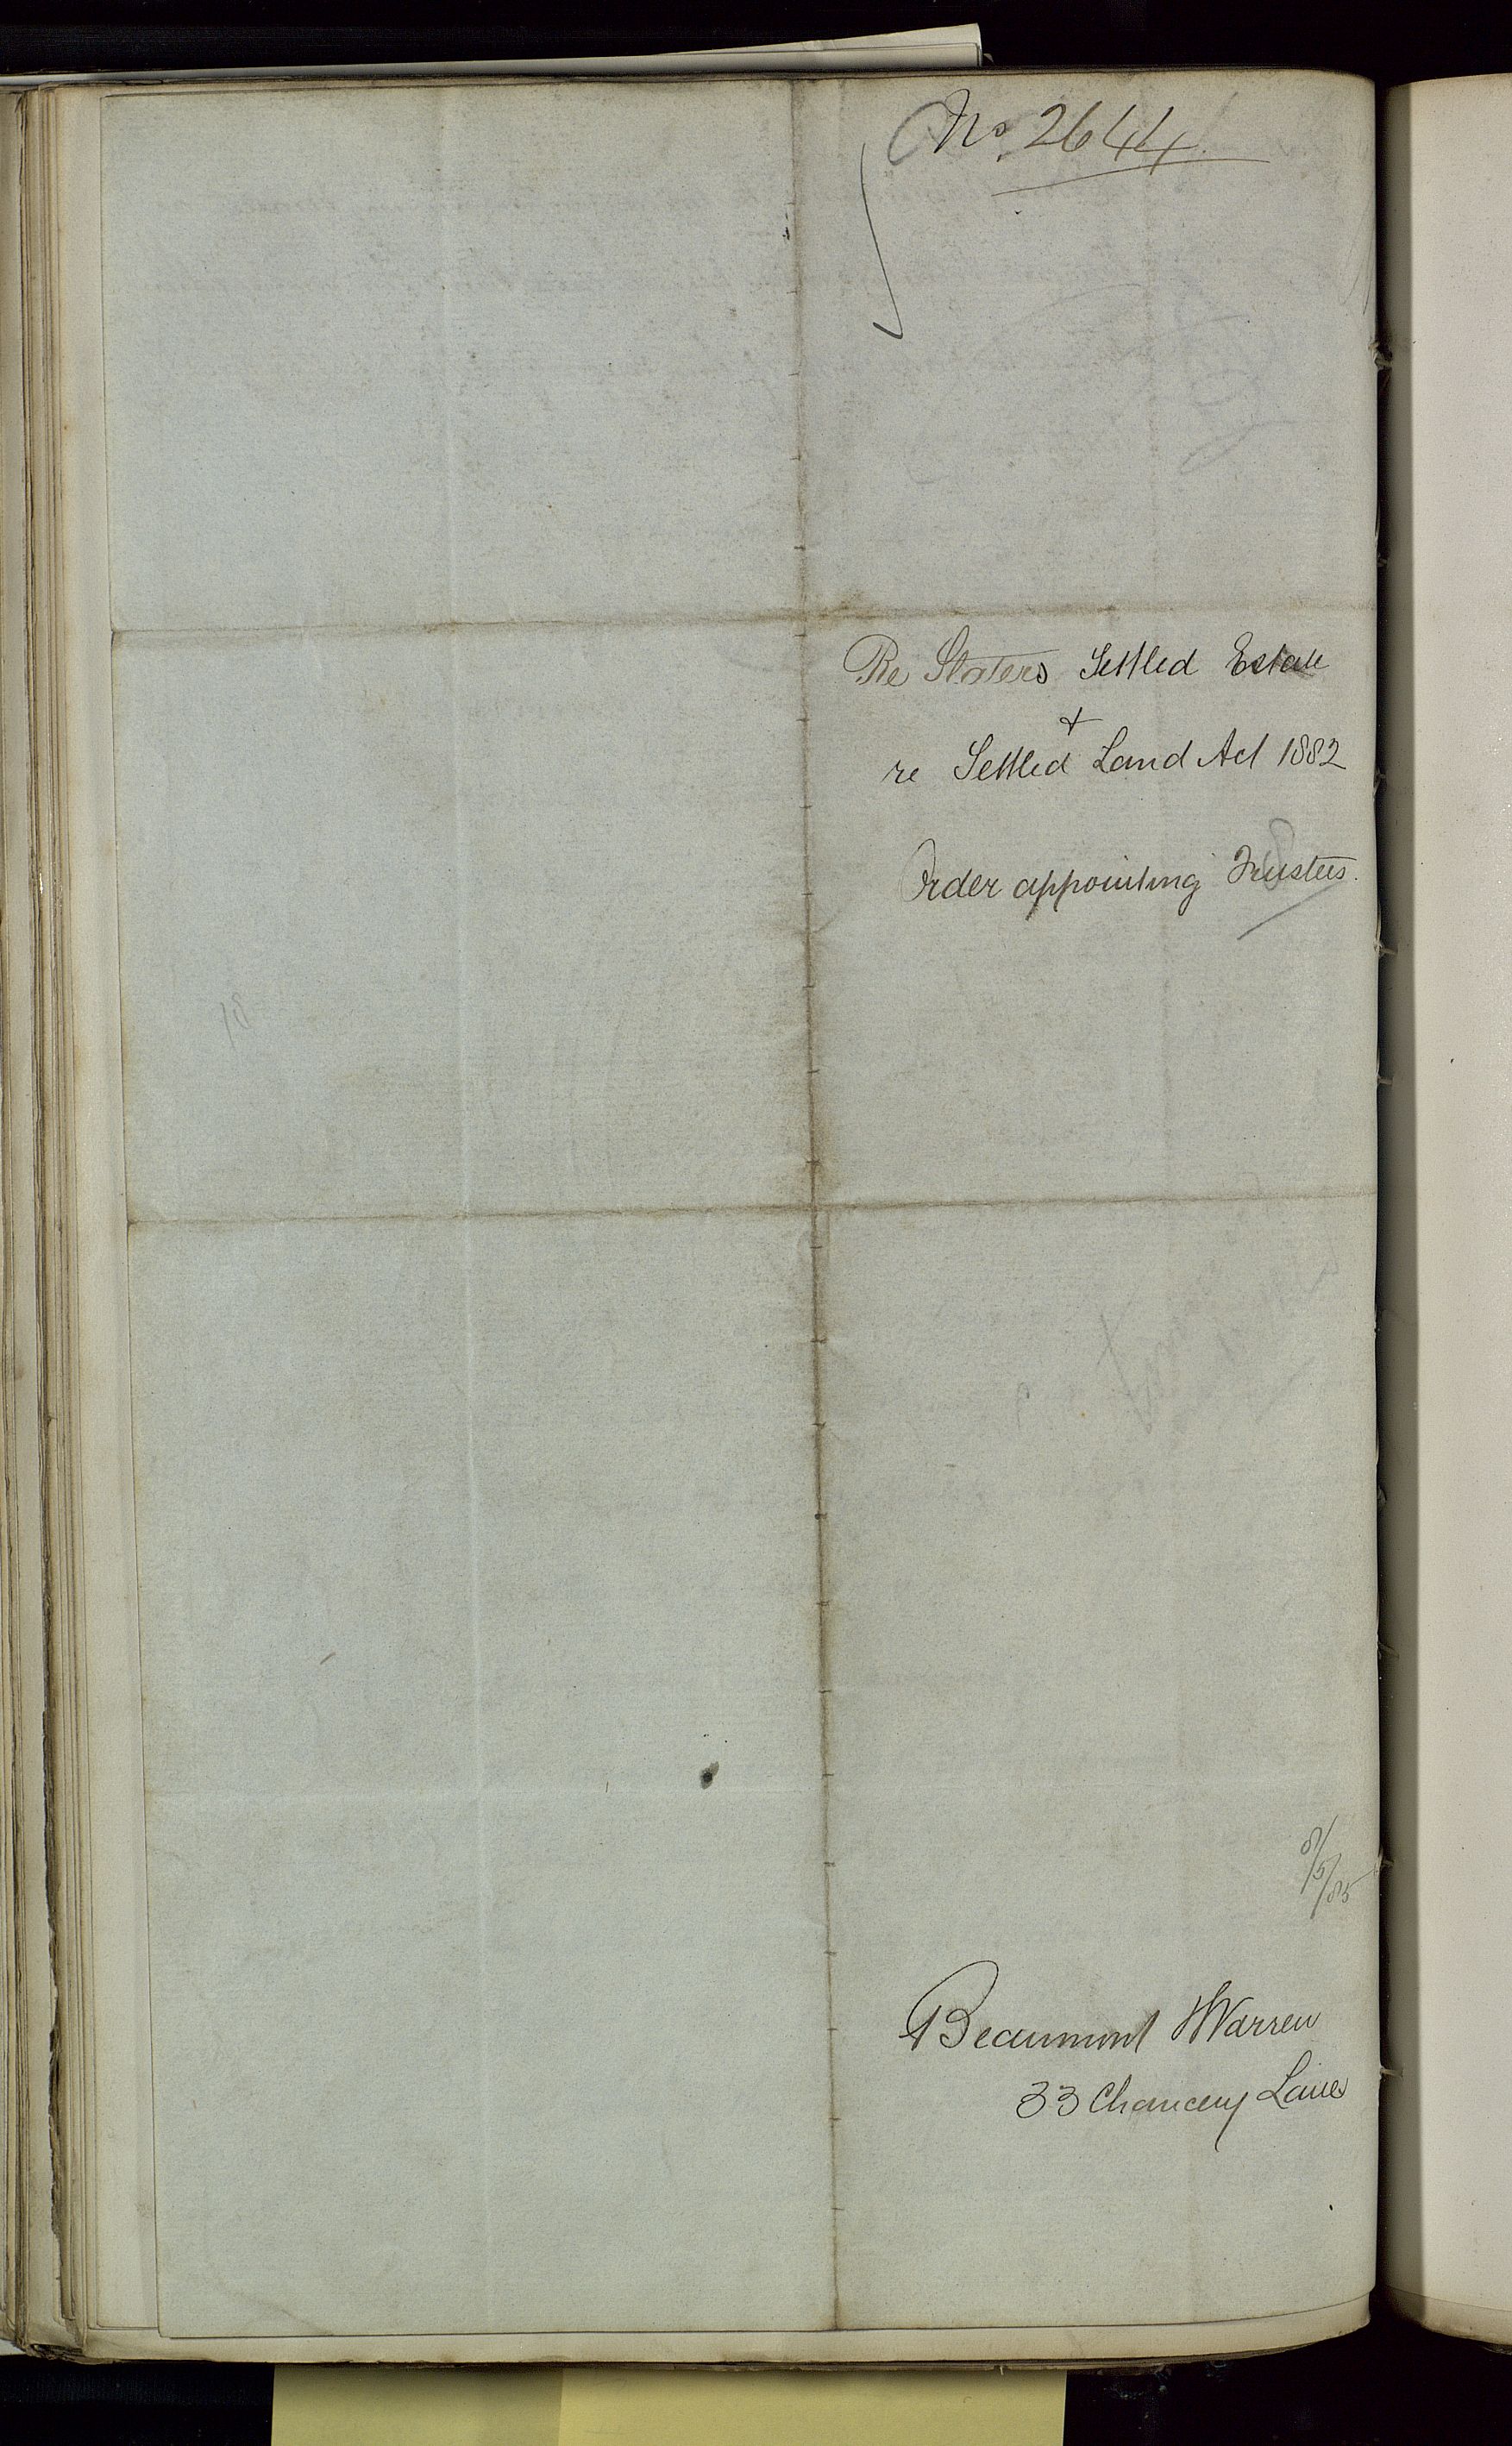 No. 2644.
Re Slaters Settled Estate
&
re Settled Land Act 1882
Order appointing Trustees.
8/5/85
Beaumont & Warren
33 Chancery Lane